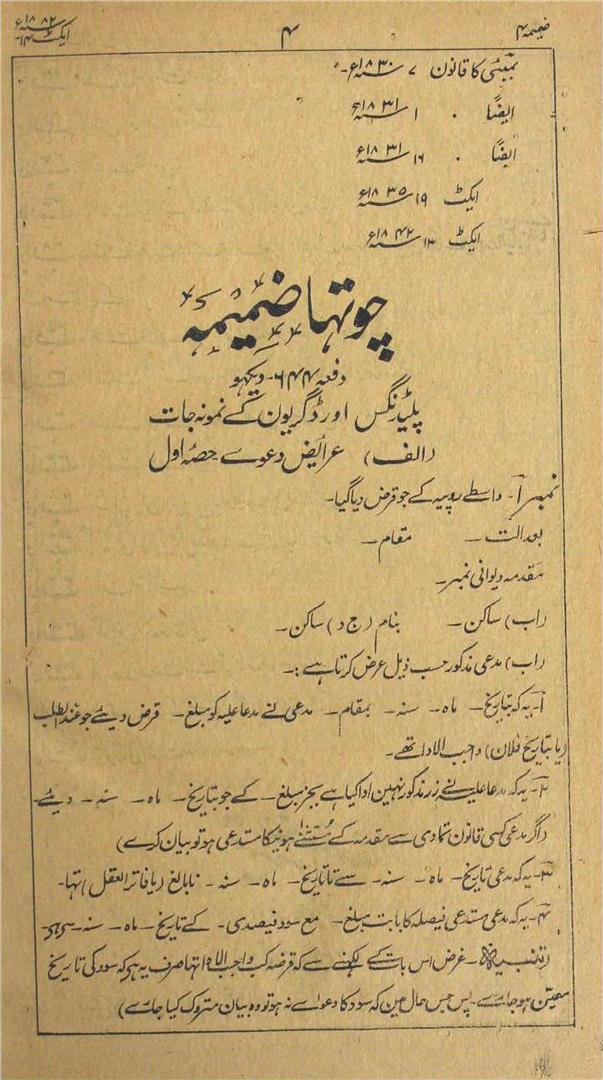 ضمیمہ ۴ ۴ ایکٹ ۱۴ سنہ ۱۸۸۲ء
بمبئی کا قانون ۷ سنہ ۱۸۳۰ء۔
ایضًا ۔ ۱ سنہ ۱۸۳۱ء
ایضًا ۔ ۱۶ سنہ ۱۸۳۱ء
ایکٹ ۱۹ سنہ ۱۸۳۵ء
ایکٹ ۱۳ سنہ ۱۸۴۲ء
چوتھا ضمیمہ
دفعہ ۶۴۴۔ دیکھو
پلیڈنگس اور ڈگریون کے نمونہ جات
(الف) عرائیض دعوے حصۂ اول
نمبر ۱۔ واسطے روپیہ کے جو قرض دیا گیا۔
بعدالت ۔ مقام۔
مقدمہ دیوانی نمبر۔
(اب) ساکن۔ بنام (ج د) ساکن۔
(اب) مدعی مذکور حسب ذیل عرض کرتا ہے :۔
۱۔ یہ کہ بتاریخ۔ ماہ ۔ سنہ ۔ بمقام۔ مدعی نے مدعاعلیہ کو مبلغ۔ قرض دیئے جو عندالطلب
(یا بتاریخ فلان) واجب الادا تھے۔
۲۔ یہ کہ مدعا علیہ نے زر مذکور نہین ادا کیا ہے بجز مبلغ۔ کے جو بتاریخ۔ ماہ ۔ سنہ ۔ دیئے۔
(اگر مدعی کسی قانون تمادی سے مقدمہ کے مستثنےٰ ہونیکا مستدعی ہو تو بیان کرے)
۳۔ یہ کہ مدعی تاریخ۔ ماہ ۔ سنہ ۔ سے تا تاریخ۔ ماہ ۔ سنہ ۔ نابالغ (یا فاتر العقل) تہا۔
۴۔ یہ کہ مدعی مستدعی فیصلہ کا بابت مبلغ۔ مع سود فیصدی۔ کے تاریخ۔ ماہ ۔ سنہ۔ سے ہے۔
(تنبیہ۔ غرض اس بات کے لکھنے سے کہ قرضہ کب واجب الادا تہا صرف یہ ہے کہ سود کی تاریخ
معین ہوجاے۔ پس جس حال مین کہ سود کا دعواے نہ ہو تو وہ بیان متروک کیا جاے)